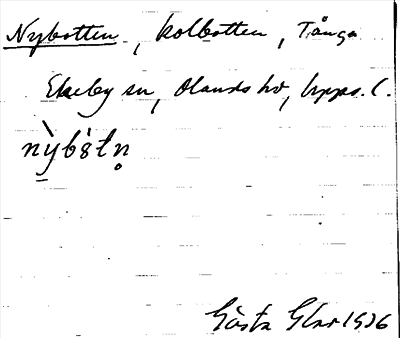 Nybotten, kolbotten, Tånga
Ekeby sn, Olands hd, Upps. l.
nỳbòtn̥
Gösta Glar 1936